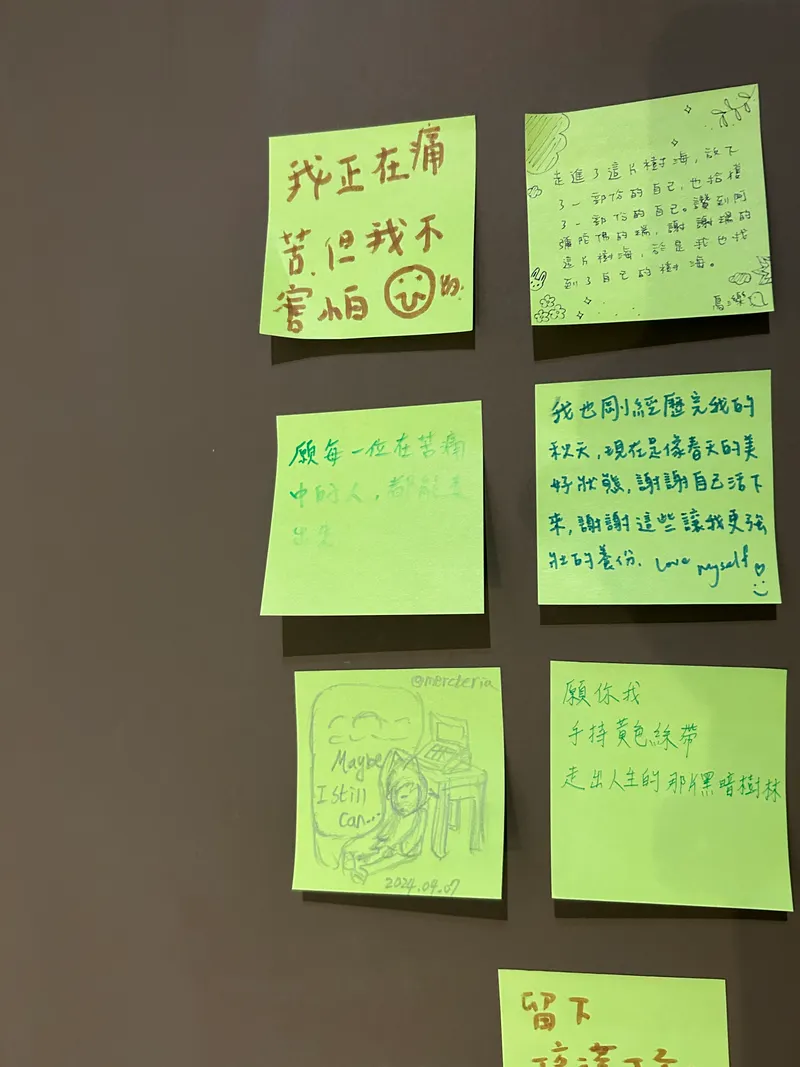 我正在痛
苦,但我不
害怕
走進了這片樹海,放下
了一部份的自己,也拾獲
了一部份的自己。讚到阿
彌陀佛的瑞,謝謝瑞的
這片樹海,於是我也找
到了自己的樹海。
願每一位在苦痛
中的人,都能走
出來
我也剛經歷完我的
秋天,現在是像春天的美
好狀態,謝謝自己活下
來,謝謝這些讓我更強
壯的養份. Love myself
@mercteria
Maybe
I still
can...
2024.09.07
願你我
手持黃色絲帶
走出人生的那片黑暗樹林
留下